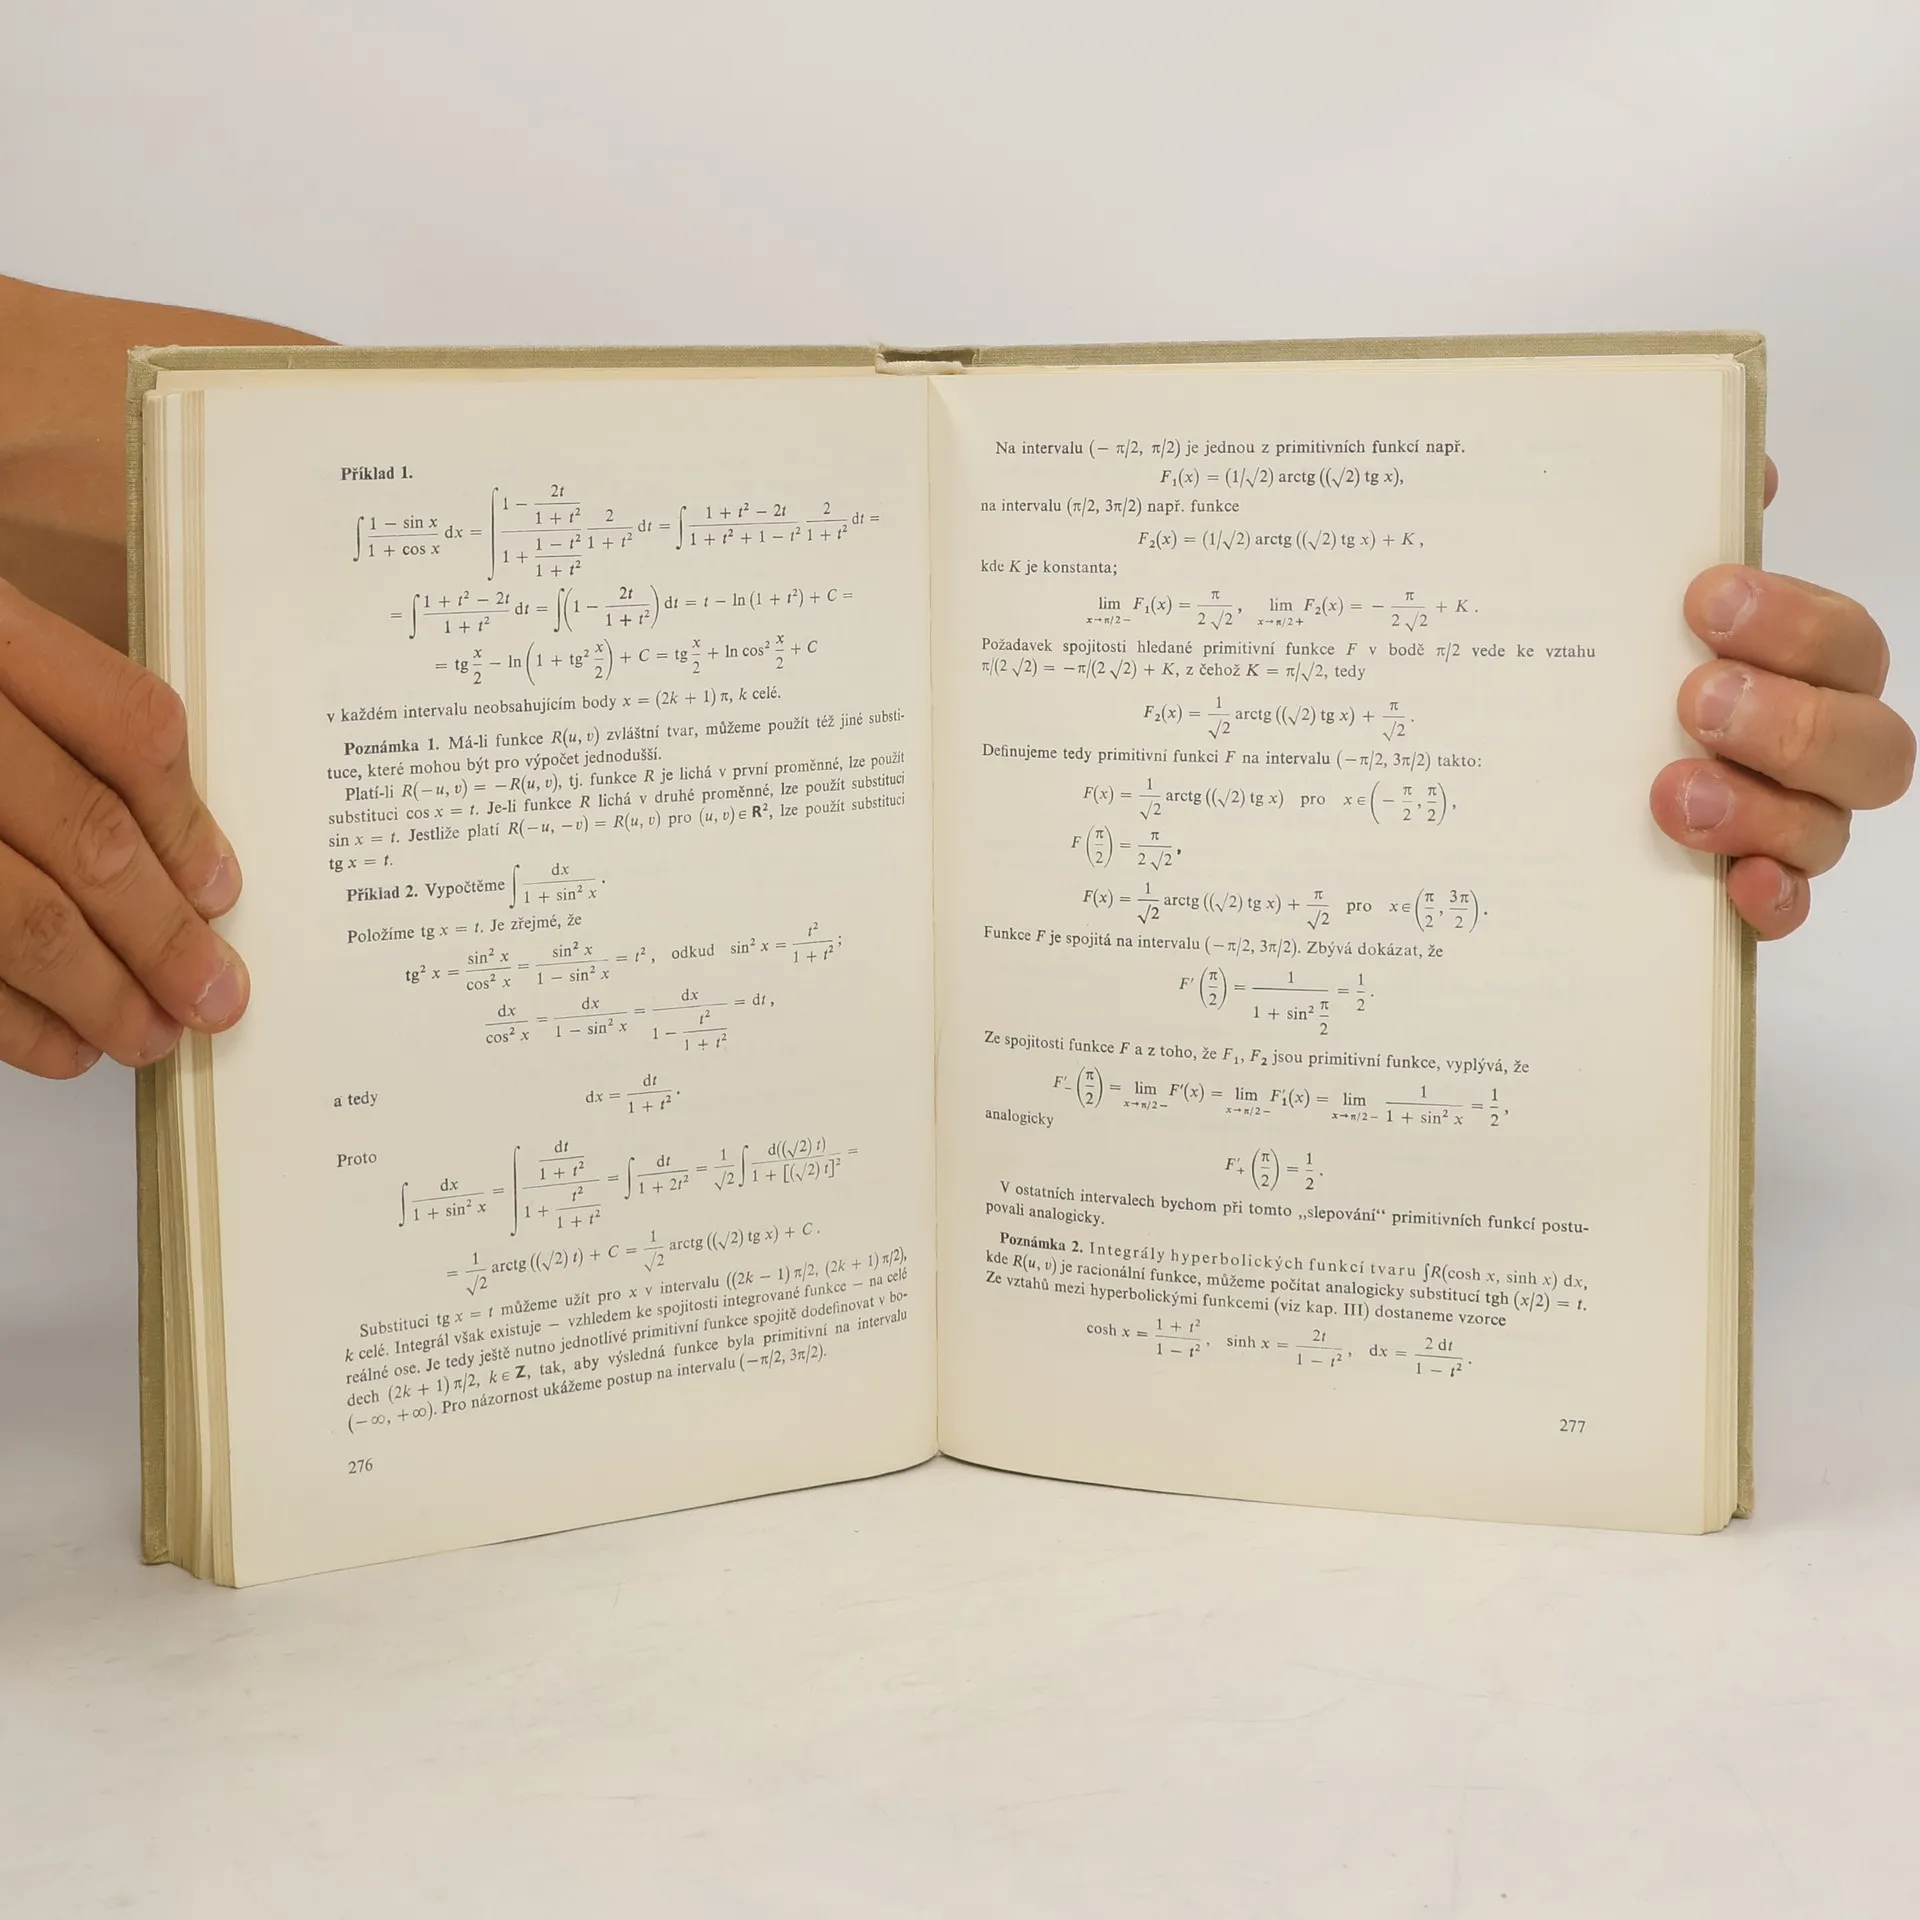 Příklad 1.
∫ (1 − sin x)/(1 + cos x) dx = ∫ (1 − 2t/(1 + t²))/(1 + (1 − t²)/(1 + t²)) 2/(1 + t²) dt = ∫ (1 + t² − 2t)/(1 + t² + 1 − t²) 2/(1 + t²) dt =
= ∫ (1 + t² − 2t)/(1 + t²) dt = ∫ (1 − 2t/(1 + t²)) dt = t − ln (1 + t²) + C =
= tg x/2 − ln (1 + tg² x/2) + C = tg x/2 + ln cos² x/2 + C
v každém intervalu neobsahujícím body x = (2k + 1) π, k celé.
Poznámka 1. Má-li funkce R(u, v) zvláštní tvar, můžeme použít též jiné substi-
tuce, které mohou být pro výpočet jednodušší.
Platí-li R(−u, v) = −R(u, v), tj. funkce R je lichá v první proměnné, lze použít
substituci cos x = t. Je-li funkce R lichá v druhé proměnné, lze použít substituci
sin x = t. Jestliže platí R(−u, −v) = R(u, v) pro (u, v) ∈ R², lze použít substituci
tg x = t.
Příklad 2. Vypočtěme ∫ dx/(1 + sin² x).
Položíme tg x = t. Je zřejmé, že
tg² x = sin² x/cos² x = sin² x/(1 − sin² x) = t², odkud sin² x = t²/(1 + t²);
dx/cos² x = dx/(1 − sin² x) = dx/(1 − t²/(1 + t²)) = dt,
a tedy dx = dt/(1 + t²).
Proto
∫ dx/(1 + sin² x) = ∫ (dt/(1 + t²))/(1 + t²/(1 + t²)) = ∫ dt/(1 + 2t²) = 1/√2 ∫ d((√2) t)/(1 + [(√2) t]²) =
= 1/√2 arctg ((√2) t) + C = 1/√2 arctg ((√2) tg x) + C.
Substituci tg x = t můžeme užít pro x v intervalu ((2k − 1) π/2, (2k + 1) π/2),
k celé. Integrál však existuje − vzhledem ke spojitosti integrované funkce − na celé
reálné ose. Je tedy ještě nutno jednotlivé primitivní funkce spojitě dodefinovat v bo-
dech (2k + 1) π/2, k ∈ Z, tak, aby výsledná funkce byla primitivní na intervalu
(−∞, +∞). Pro názornost ukážeme postup na intervalu (−π/2, 3π/2).
276
Na intervalu (− π/2, π/2) je jednou z primitivních funkcí např.
F₁(x) = (1/√2) arctg ((√2) tg x),
na intervalu (π/2, 3π/2) např. funkce
F₂(x) = (1/√2) arctg ((√2) tg x) + K,
kde K je konstanta;
lim x→π/2− F₁(x) = π/(2 √2), lim x→π/2+ F₂(x) = − π/(2 √2) + K.
Požadavek spojitosti hledané primitivní funkce F v bodě π/2 vede ke vztahu
π/(2 √2) = −π/(2 √2) + K, z čehož K = π/√2, tedy
F₂(x) = 1/√2 arctg ((√2) tg x) + π/√2.
Definujeme tedy primitivní funkci F na intervalu (−π/2, 3π/2) takto:
F(x) = 1/√2 arctg ((√2) tg x) pro x ∈ (− π/2, π/2),
F(π/2) = π/(2 √2),
F(x) = 1/√2 arctg ((√2) tg x) + π/√2 pro x ∈ (π/2, 3π/2).
Funkce F je spojitá na intervalu (−π/2, 3π/2). Zbývá dokázat, že
F′(π/2) = 1/(1 + sin² π/2) = 1/2.
Ze spojitosti funkce F a z toho, že F₁, F₂ jsou primitivní funkce, vyplývá, že
F′₋(π/2) = lim x→π/2− F′(x) = lim x→π/2− F′₁(x) = lim x→π/2− 1/(1 + sin² x) = 1/2,
analogicky
F′₊(π/2) = 1/2.
V ostatních intervalech bychom při tomto „slepování“ primitivních funkcí postu-
povali analogicky.
Poznámka 2. Integrály hyperbolických funkcí tvaru ∫R(cosh x, sinh x) dx,
kde R(u, v) je racionální funkce, můžeme počítat analogicky substitucí tgh (x/2) = t.
Ze vztahů mezi hyperbolickými funkcemi (viz kap. III) dostaneme vzorce
cosh x = (1 + t²)/(1 − t²), sinh x = 2t/(1 − t²), dx = 2 dt/(1 − t²).
277